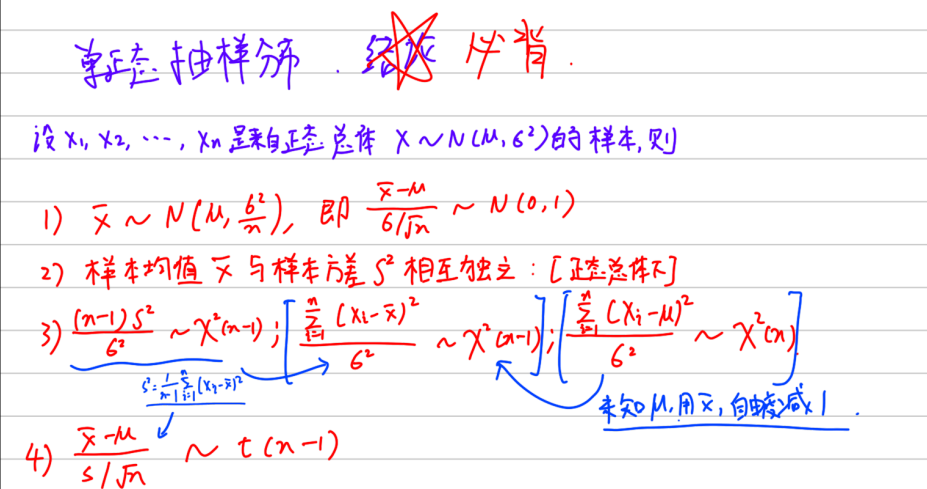 单正态抽样分布. 结论 必背.
设 X₁, X₂, ⋯, Xn 是来自正态总体 X ~ N(μ, σ²) 的样本, 则
1) x̄ ~ N(μ, σ²/n), 即 (x̄-μ)/(σ/√n) ~ N(0,1)
2) 样本均值 x̄ 与样本方差 S² 相互独立: [正态总体下]
3) (n-1)S²/σ² ~ χ²(n-1); [∑ᵢ₌₁ⁿ(Xᵢ-x̄)²/σ² ~ χ²(n-1)]; [∑ᵢ₌₁ⁿ(Xᵢ-μ)²/σ² ~ χ²(n)]
S²=1/(n-1) ∑ᵢ₌₁ⁿ(Xᵢ-x̄)²
未知μ, 用x̄, 自由度减1.
4) (x̄-μ)/(S/√n) ~ t(n-1)